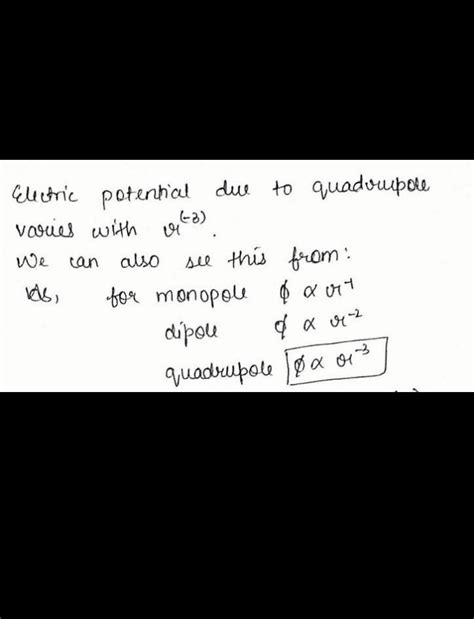 Electric potential due to quadrupole
varies with r^(-3).
We can also see this from:
As, for monopole ϕ ∝ r^-1
dipole ϕ ∝ r^-2
quadrupole ϕ ∝ r^-3